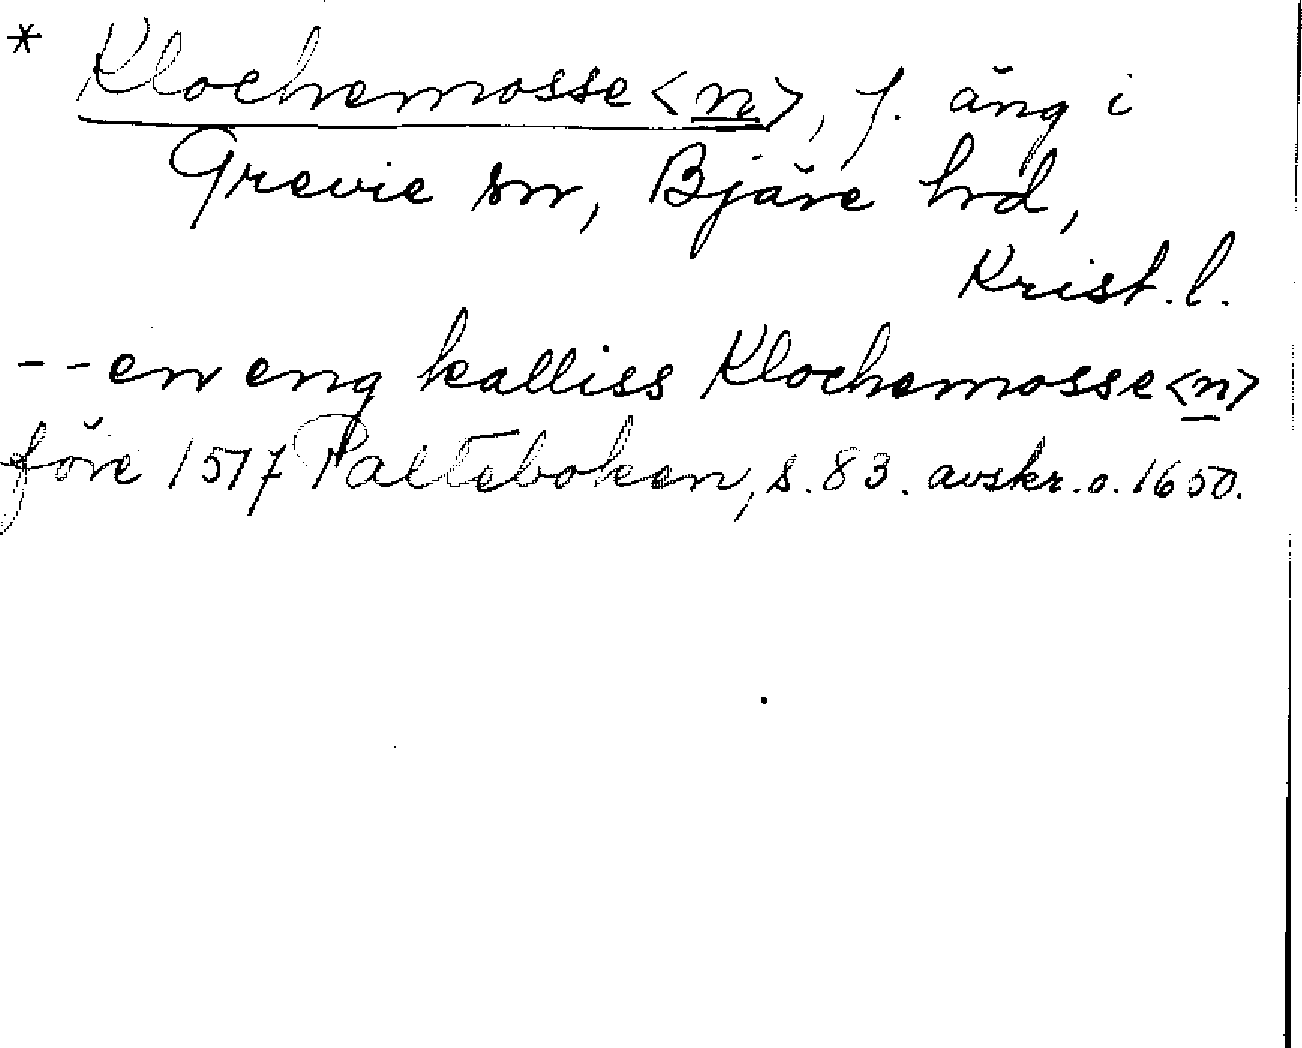 * Klochemosse<n>, f. äng i
Grevie sn, Bjäre hd,
Krist. l.
-- en eng kalliss Klochemosse<n>
före 1517 Palteboken, s. 83. avskr. o. 1650.